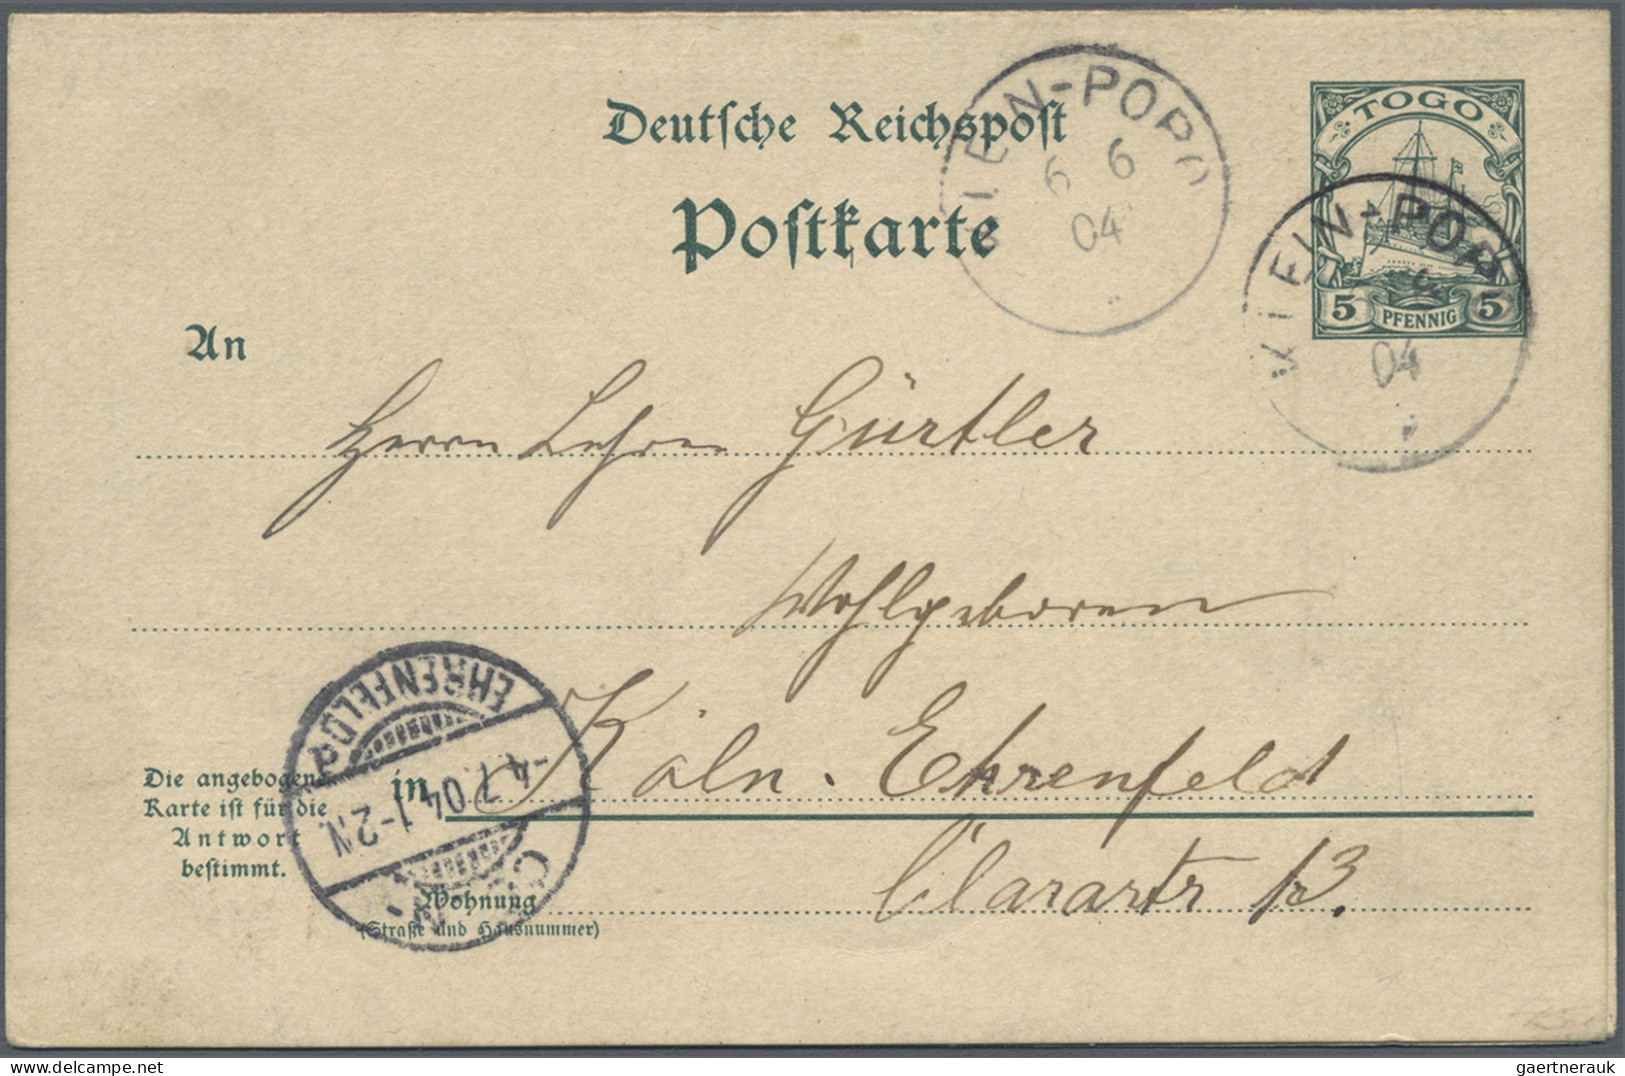 Deutsche Reichspost
Postkarte
KLEIN-POPO
6 6
04
TOGO
5 PFENNIG 5
KLEIN-POPO
04
An
Herrn Lehrer Gürtler
Wohlgeboren
in Köln. Ehrenfeld
Die angebogene
Karte ist für die
Antwort
bestimmt.
Wohnung
(Straße und Hausnummer)
Clarastr 13.
EHRENFELD
-4.7.04. 1-2 N.
gaertnerauk